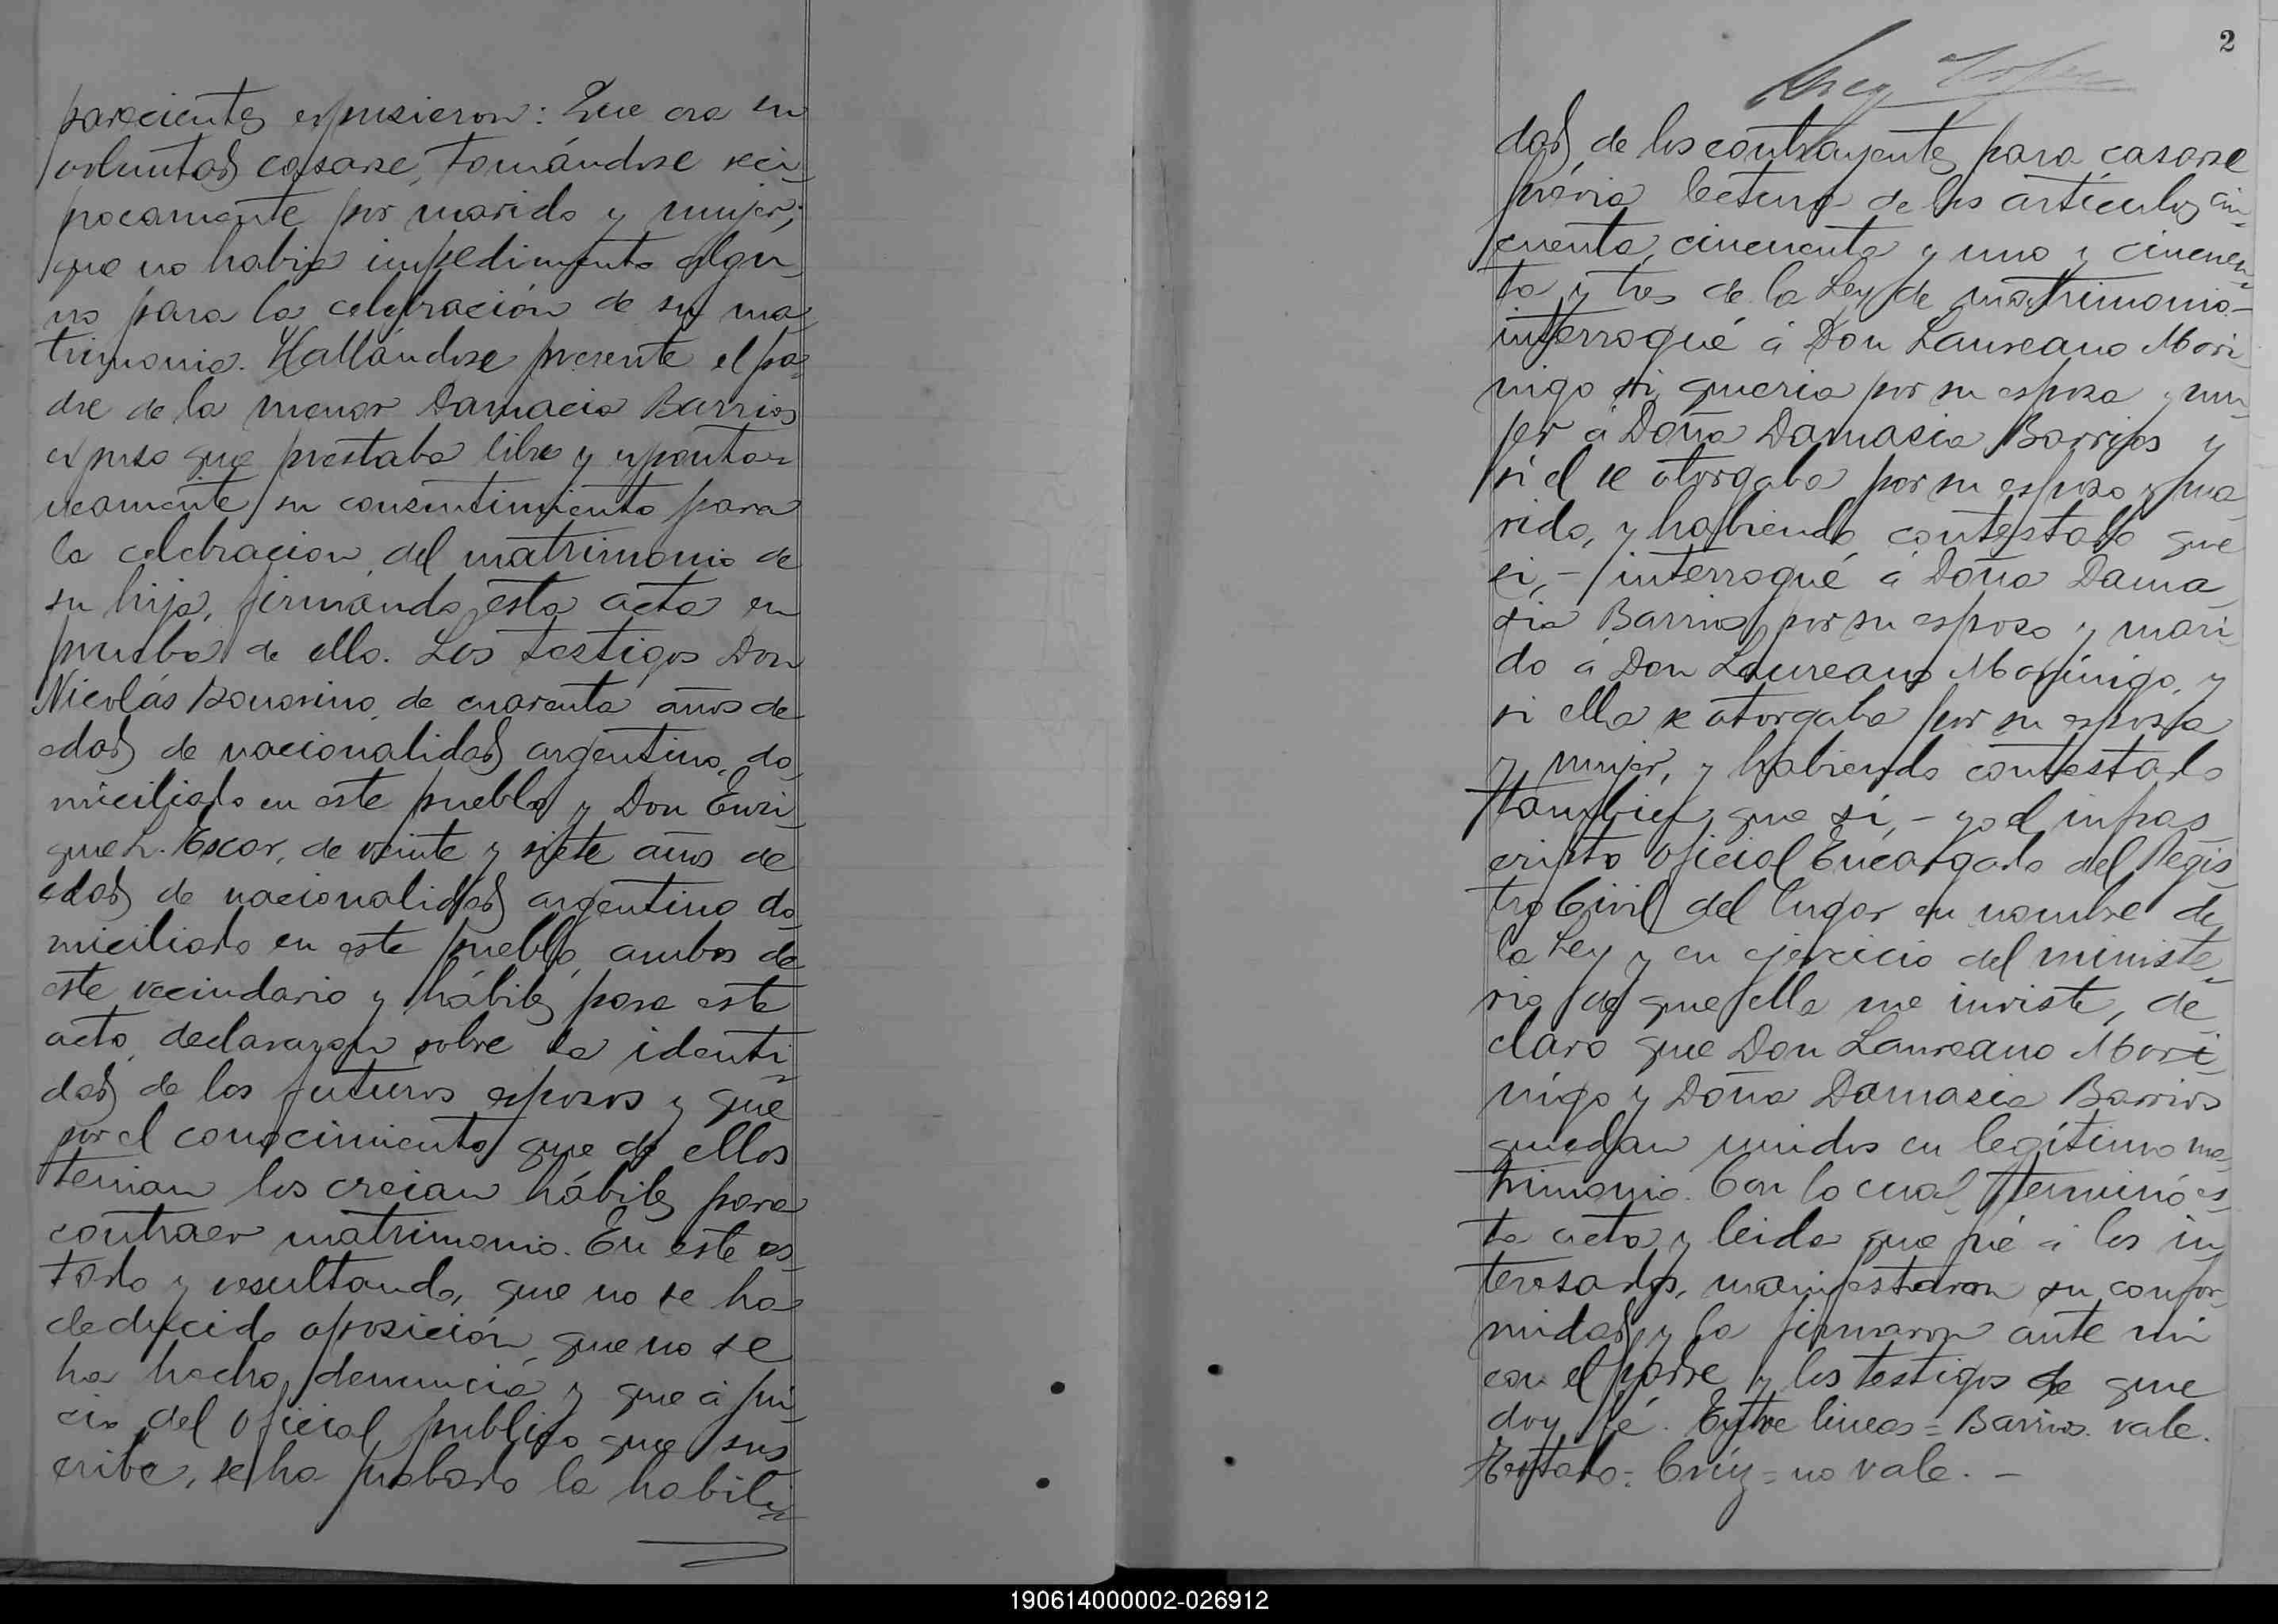 parecientes expusieron: Que era su
voluntad casarse, tomándose reci-
procamente por marido y mujer;
que no habia impedimento algu-
no para la celebración de su ma-
trimonio. Hallándose presente el pa-
dre de la menor Damacia Barrios
expuso que prestaba libre y espontá-
neamente su consentimiento para
la celebracion del matrimonio de
su hija, firmando esta acta en
prueba de ello. Los testigos Don
Nicolás de cuarenta años de
edad de nacionalidad argentino, do-
miciliado en este pueblo y Don Enri-
que L. Escar, de veinte y siete años de
edad de nacionalidad argentino do-
miciliado en este pueblo, ambos de
este vecindario y hábiles para este
acto, declararon sobre la identi-
dad de los futuros esposos y que
por el conocimiento que de ellos
tenian los creian hábiles para
contraer matrimonio. En este es-
tado y resultando, que no se ha
deducido oposición, que no se
ha hecho denuncia y que á jui-
cio del oficial publico que sus-
cribe, se ha probado la habili-
2
dad de los contrayentes para casarse
prévia lectura de los artículos cin-
cuenta, cincuenta y uno y cincuen-
ta y tres de la Ley de matrimonio-
interrogué á Don Laureano Mori-
nigo si queria por su esposa y mu-
jer á Doña Damasia Barrios y
si el se otorgaba por su esposo y ma-
rido, y habiendo contestado que
si, - interrogué á Doña Dama-
sia Barrios por su esposo y mari-
do á Don Laureano Morínigo, y
si ella se otorgaba por su esposa
y mujer, y habiendo contestado
tambien que sí, - yo el infras-
cripto Oficial Encargado del Regis-
tro Civil del lugar en nombre de
la Ley y en ejercicio del ministe-
rio de que ella me inviste, de-
claro que Don Laureano Mori-
nigo y Doña Damasia Barrios
quedan unidos en legítimo ma-
trimonio. Con lo cual terminó es-
ta acta y leida que fué á los in-
teresados, manifestaron su confor-
midad, y la firmaron ante mi
con el padre y los testigos de que
doy fé. Entre lineas = Barrios. vale.
Testado = Crúz = no vale. -
190614000002-026912